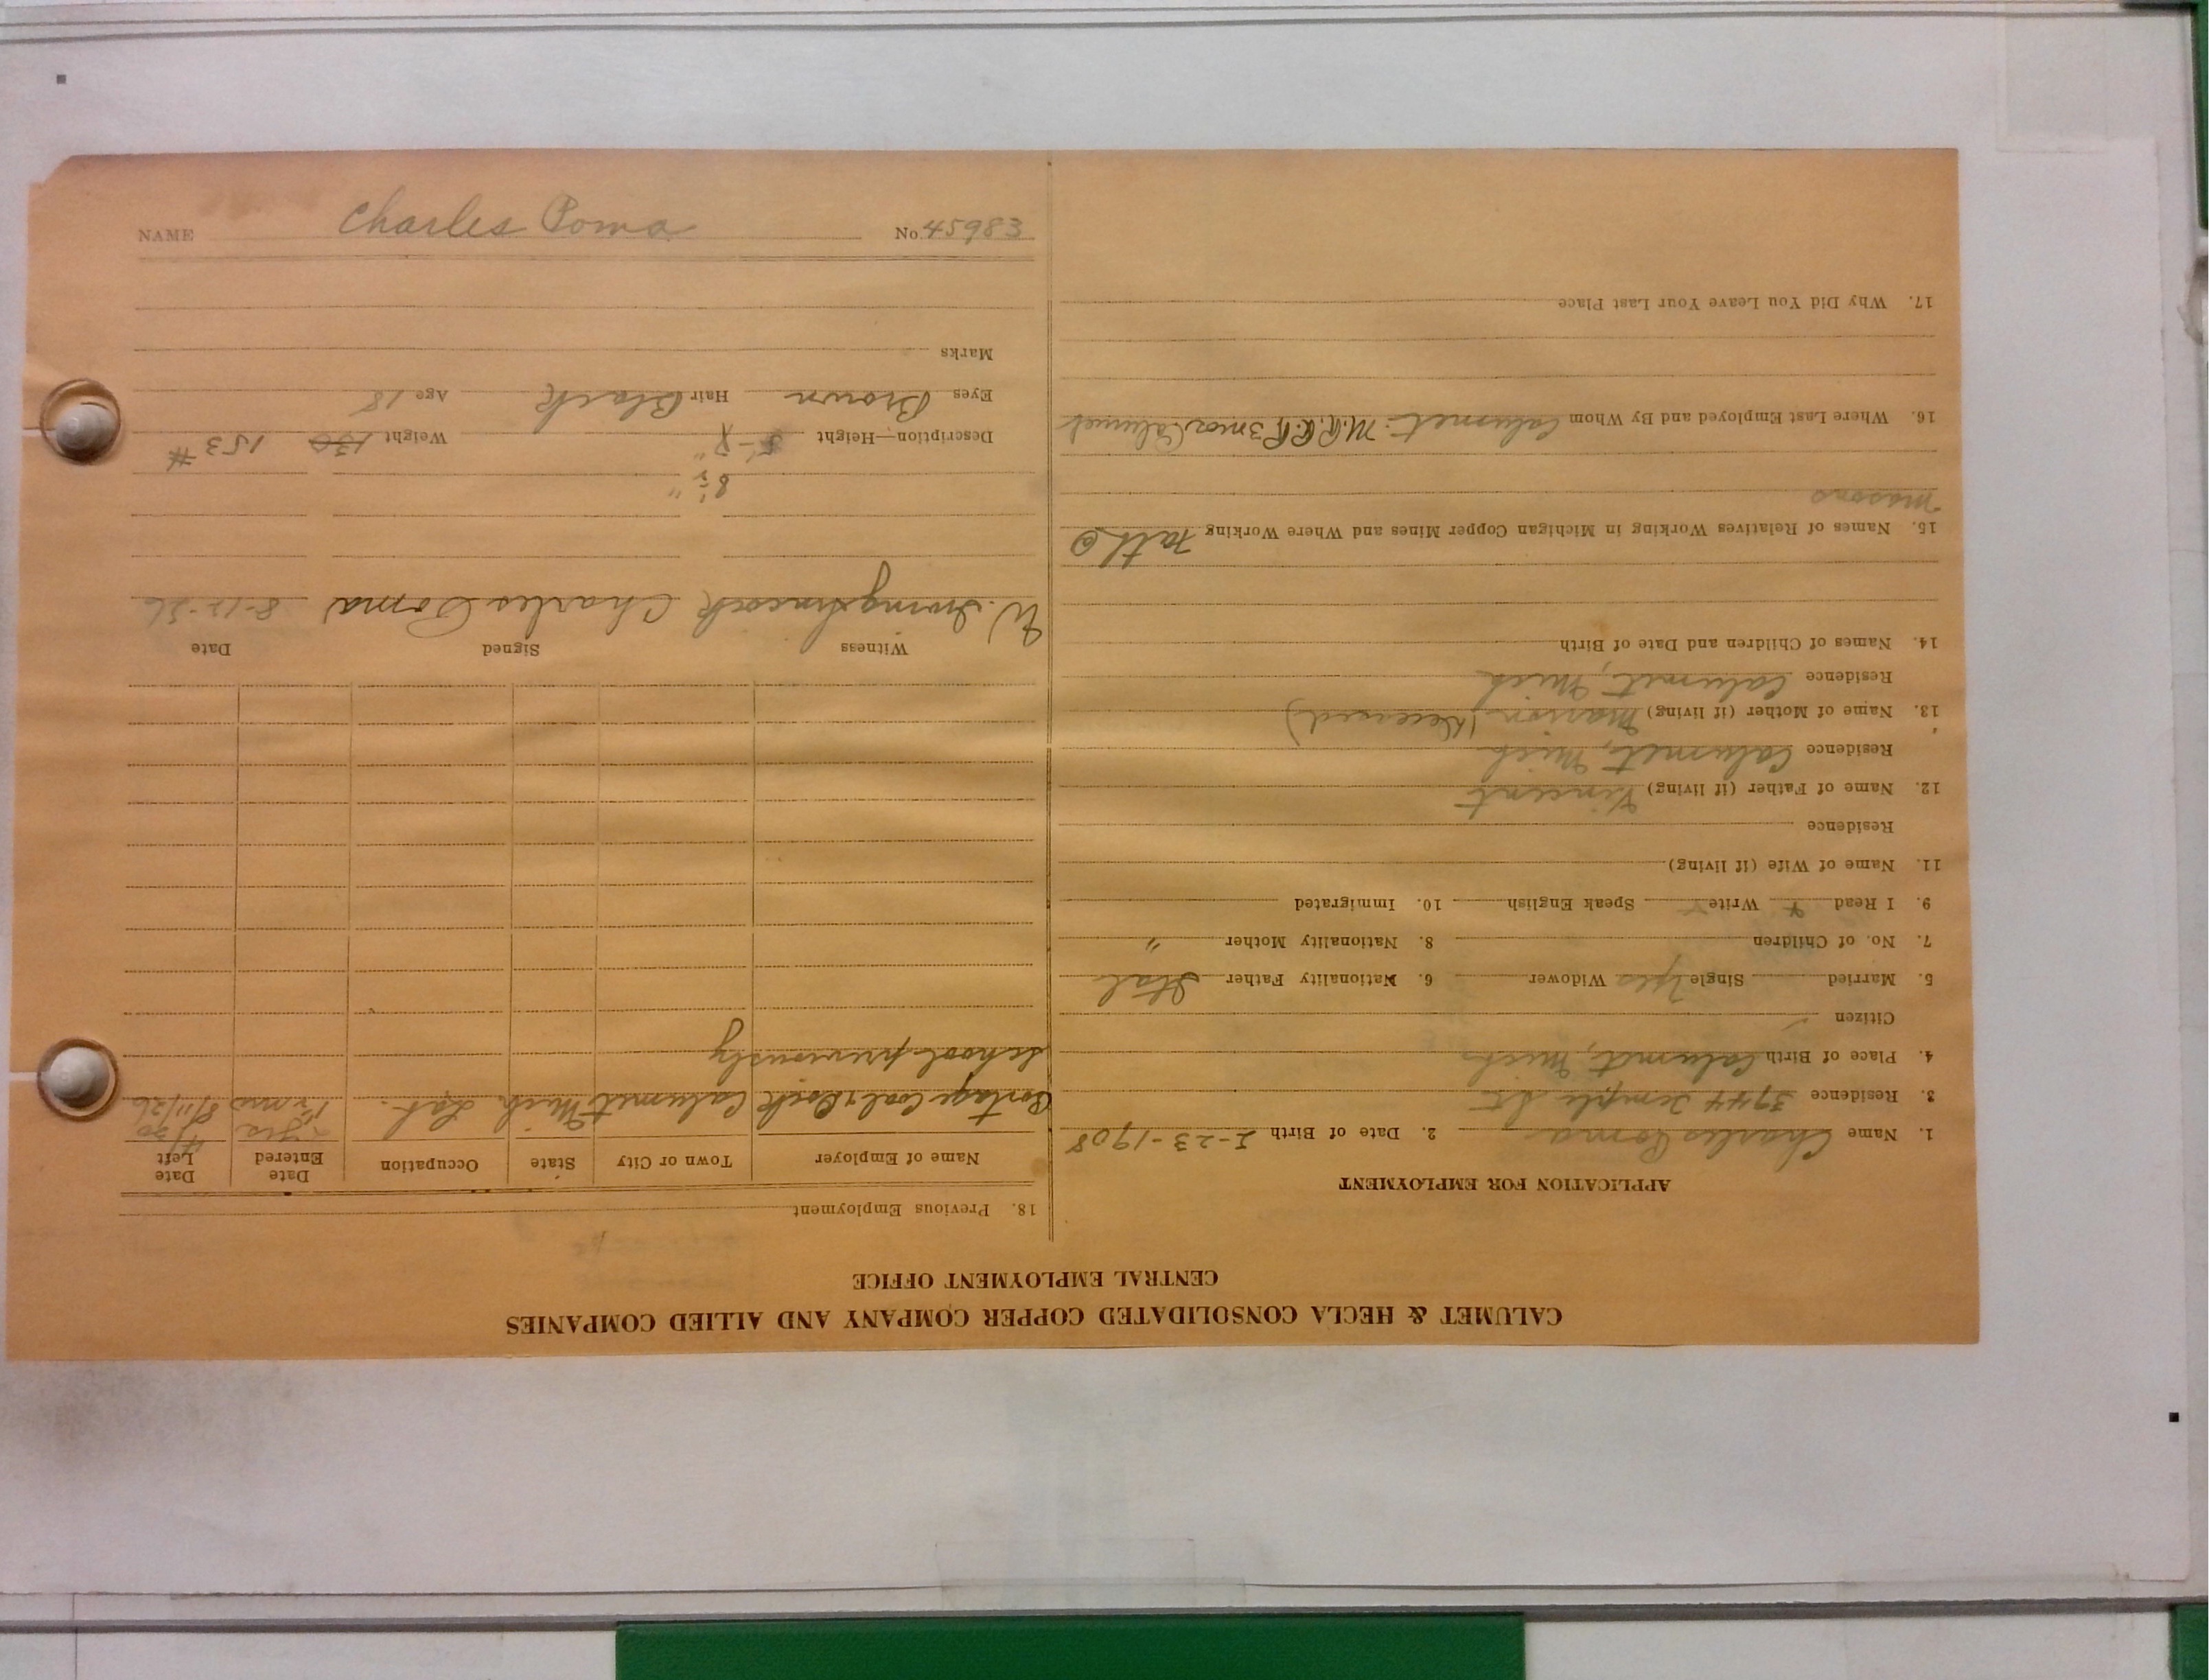 NAME Charles Poma No. 45983
CALUMET & HECLA CONSOLIDATED COPPER COMPANY AND ALLIED COMPANIES
CENTRAL EMPLOYMENT OFFICE
APPLICATION FOR EMPLOYMENT
1. Name Charles Poma 2. Date of Birth 1-23-1908
3. Residence 3744 Temple St
4. Place of Birth Calumet, Mich
Citizen
5. Married Single Yes Widower 6. Nationality Father Ital
7. No. of Children 8. Nationality Mother "
9. I Read Write Speak English 10. Immigrated
11. Name of Wife (if living)
Residence
12. Name of Father (if living) Vincent
Residence Calumet, Mich
13. Name of Mother (if living) Marion (Deceased)
Residence Calumet, Mich
14. Names of Children and Date of Birth
15. Names of Relatives Working in Michigan Copper Mines and Where Working Fath @
masons
16. Where Last Employed and By Whom Calumet. M.R.R. 3 mos Calumet
17. Why Did You Leave Your Last Place
18. Previous Employment
Name of Employer Town or City State Occupation Date Entered Date Left
Portage Coal & Dock Calumet Mich 8/11/26
School previously
Witness Signed Date
W. Irving Charles Poma 8-12-26
8½"
Description—Height 5'-8" Weight 130 153 #
Eyes Brown Hair Black Age 18
Marks